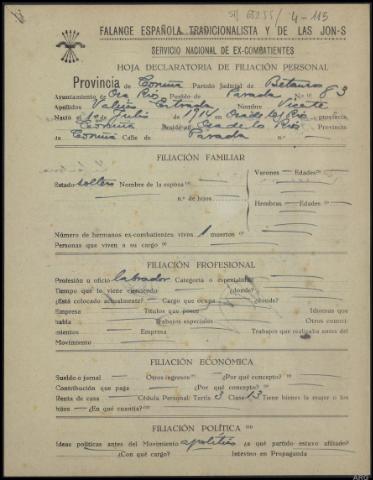 4-115
FALANGE ESPAÑOLA TRADICIONALISTA Y DE LAS JON-S
SERVICIO NACIONAL DE EX-COMBATIENTES
HOJA DECLARATORIA DE FILIACIÓN PERSONAL
Provincia de Coruña Partido Judicial de Betanzos
Ayuntamiento de Oza Rio Pueblo de Parada N.º 83
Apellidos Estrada Nombre Vicente
Nació el 1º de Julio 1914 en Oza de los Rio provincia
Coruña Residencia Oza de los Rio Provincia
de Coruña Calle de Parada
FILIACIÓN FAMILIAR
Varones — Edades
Estado soltero Nombre de la esposa
n.º de hijos
Hembras — Edades
Número de hermanos ex-combatientes vivos 1 muertos
Personas que viven a su cargo
FILIACIÓN PROFESIONAL
Profesión u oficio labrador Categoría o especialidad
Tiempo que lo viene ejerciendo ¿donde?
¿Está colocado actualmente? Cargo que ocupa ¿donde?
Empresa Títulos que posee Idiomas que
habla Trabajos especiales Otros conoci-
mientos Empresa Trabajos que realizaba antes del
Movimiento
FILIACIÓN ECONÓMICA
Sueldo o jornal Otros ingresos ¿Por qué concepto?
Contribución que paga ¿Por qué concepto?
Renta de casa Cédula Personal: Tarifa 3 Clase 13 Tiene bienes la mujer o los
hijos ¿En qué cuantía?
FILIACIÓN POLÍTICA
Ideas políticas antes del Movimiento apolitico ¿a qué partido estuvo afiliado?
¿Con qué cargo? Intervino en Propaganda